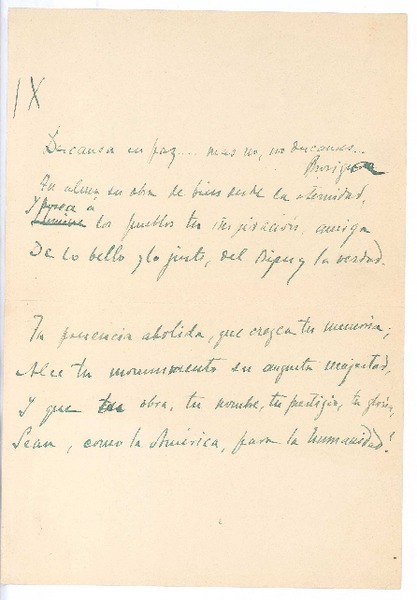 IX
Descansa en paz.... mas no, no descanses...
Prosiga
Tu alma su obra de bien desde la eternidad,
Y á
los pueblos tu inspiración, amiga
De lo bello y lo justo, del Bien y la verdad.
Tu presencia abolida, que crezca tu memoria;
Alce tu monumento su augusta majestad,
Y que tu obra, tu nombre, tu prestigio, tu gloria,
Sean, como la América, para la humanidad!